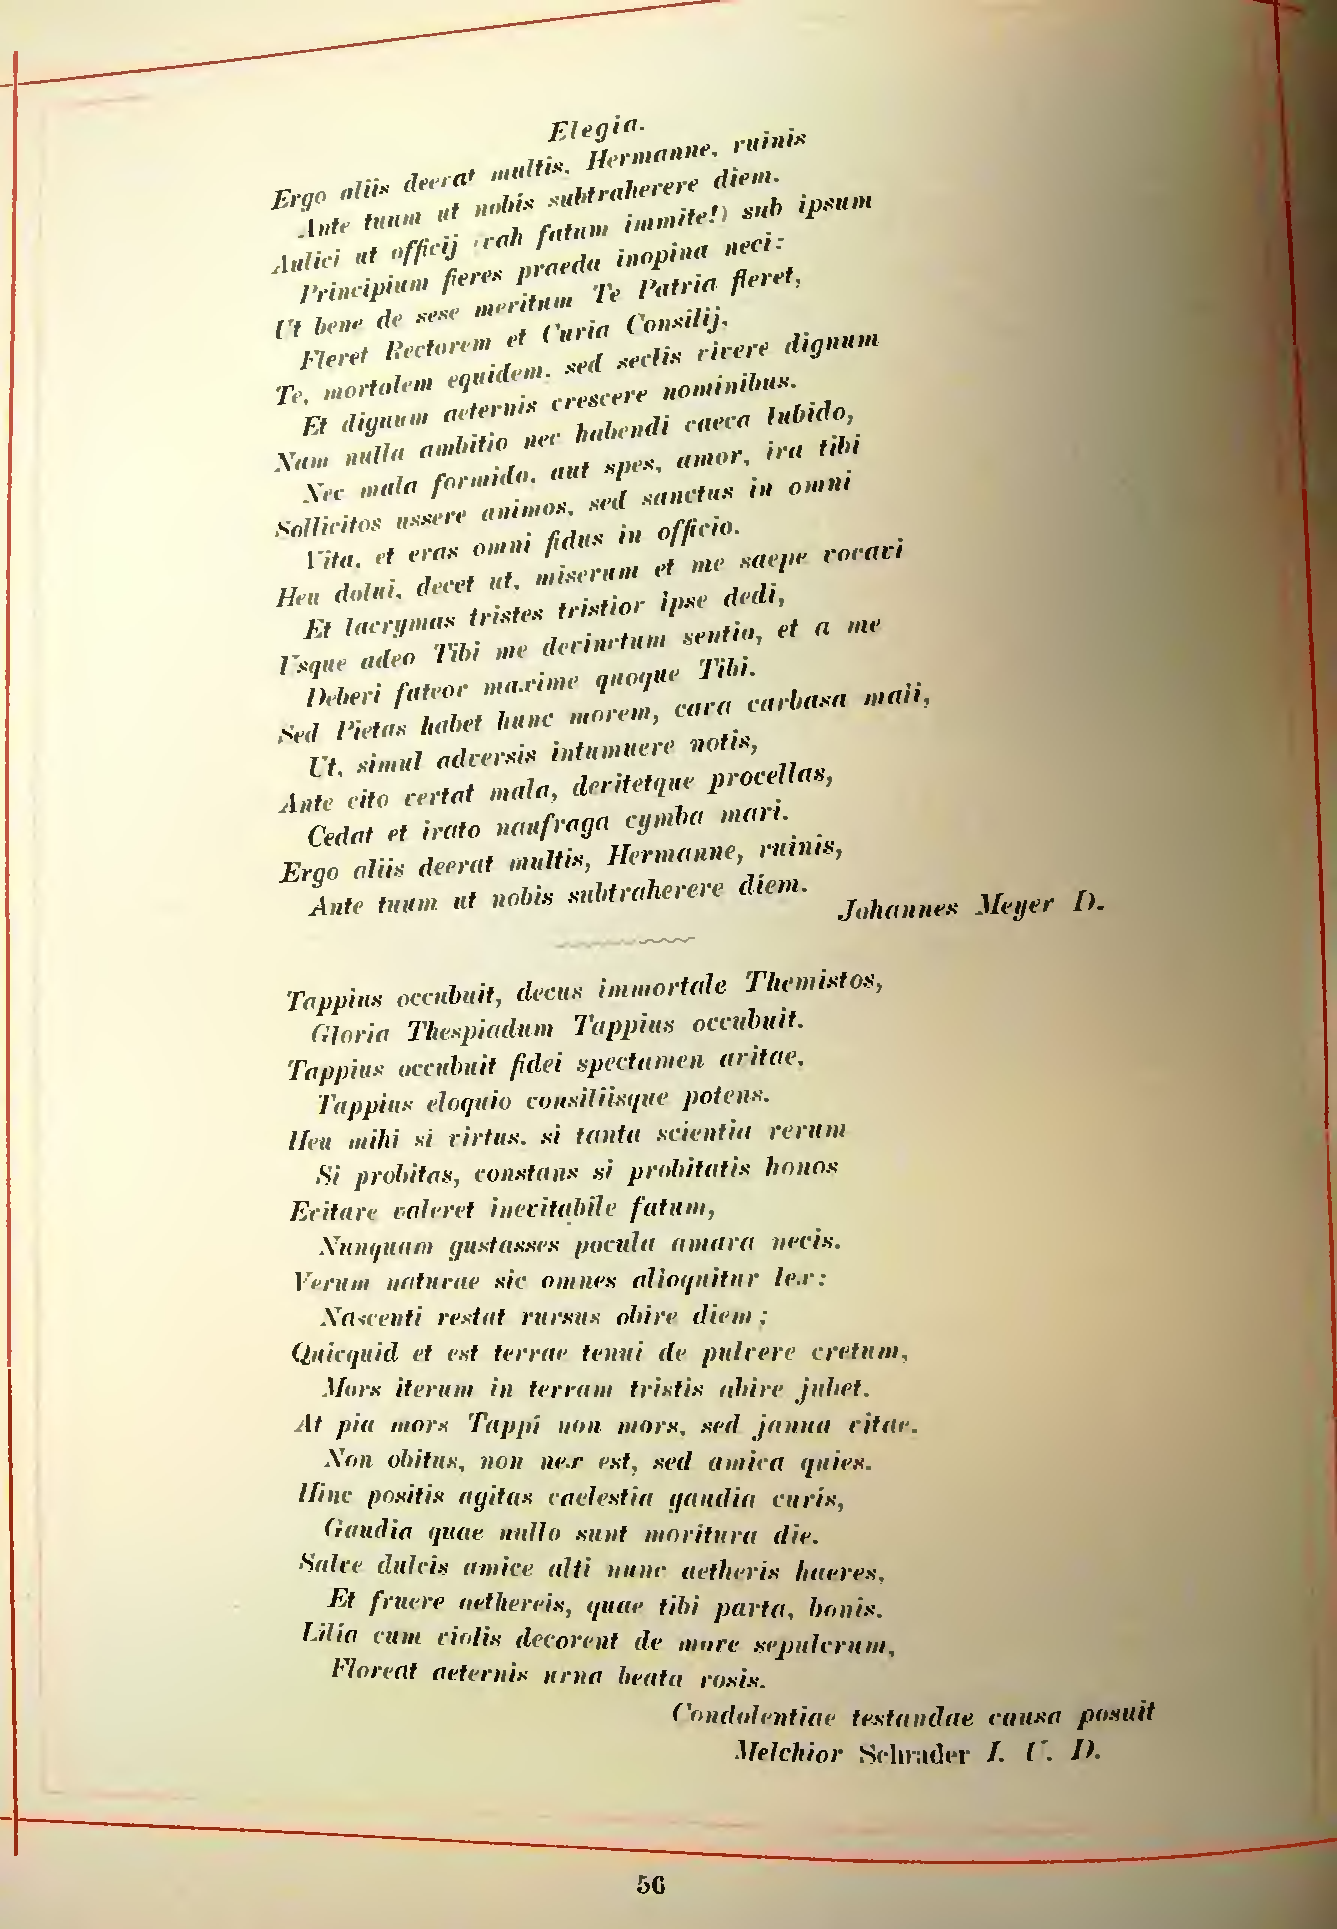 Elegia.
Ergo aliis deerat multis, Hermanne, ruinis
Ante tuum ut nobis subtraherere diem.
Aulici ut officij (vah fatum immite!) sub ipsum
Principium fieres praeda inopina neci:
Ut bene de sese meritum Te Patria fleret,
Fleret Rectorem et Curia Consilij,
Te, mortalem equidem, sed seclis vivere dignum
Et dignum aeternis crescere nominibus.
Nam nulla ambitio nec habendi caeca lubido,
Nec mala formido, aut spes, amor, ira tibi
Sollicitos ussere animos, sed sanctus in omni
Vita, et eras omni fidus in officio.
Heu dolui, decet ut, miserum et me saepe vocavi
Et lacrymas tristes tristior ipse dedi,
Usque adeo Tibi me devinctum sentio, et a me
Deberi fateor maxime quoque Tibi.
Sed Pietas habet hunc morem, cara carbasa mali,
Ut, simul adversis intumuere notis,
Ante cito vertat mala, devitetque procellas,
Cedat et irato naufraga cymba mari.
Ergo aliis deerat multis, Hermanne, ruinis,
Ante tuum ut nobis subtraherere diem.
Johannes Meyer D.
Tappius occubuit, decus immortale Themistos,
Gloria Thespiadum Tappius occubuit.
Tappius occubuit fidei spectamen avitae,
Tappius eloquio consiliisque potens.
Heu mihi si virtus, si tanta scientia rerum
Si probitas, constans si probitatis honos
Evitare valeret inevitabile fatum,
Nunquam gustasses pocula amara necis.
Verum naturae sic omnes alloquitur lex:
Nascenti restat rursus obire diem;
Quicquid et est terrae tenui de pulvere cretum,
Mors iterum in terram tristis abire jubet.
At pia mors Tappi non mors, sed janua vitae.
Non obitus, non nex est, sed amica quies.
Hinc positis agitas caelestia gaudia curis,
Gaudia quae nullo sunt moritura die.
Salve dulcis amice alti nunc aetheris haeres,
Et fruere aethereis, quae tibi parta, bonis.
Lilia cum violis decorent de more sepulcrum,
Floreat aeternis urna beata rosis.
Condolentiae testandae causa posuit
Melchior Schrader I. U. D.
56